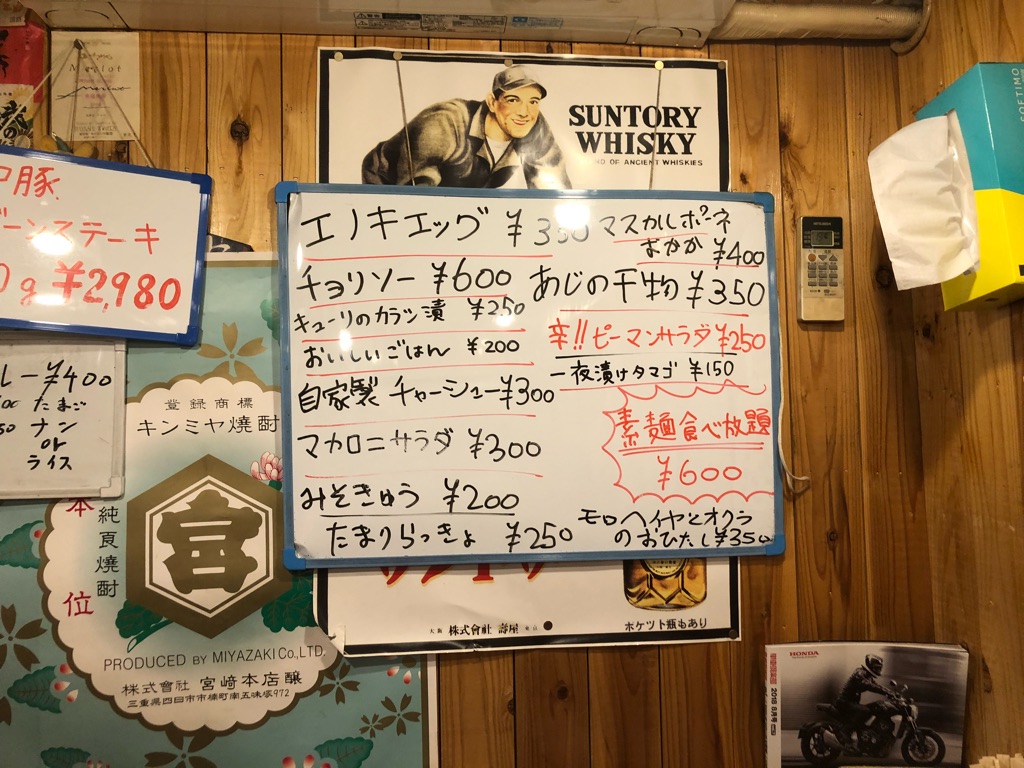 SUNTORY
WHISKY
ND OF ANCIENT WHISKIES
Merlot
豚
ステーキ
0g ¥2,980
レー ¥400
たまご
50 ナン
or
ライス
エノキエッグ ¥350
チョリソー ¥600
キューリのカラシ漬 ¥250
おいしいごはん ¥200
自家製 チャーシュー ¥300
マカロニサラダ ¥300
みそきゅう ¥200
たまりらっきょ ¥250
マスカルポーネ
おかか ¥400
あじの干物 ¥350
辛!! ピーマンサラダ ¥250
一夜漬けタマゴ ¥150
素麺食べ放題
¥600
モロヘイヤとオクラ
のおひたし ¥350
登録商標
キンミヤ焼酎
本位
純良焼酎
宮
PRODUCED BY MIYAZAKI CO., LTD.
株式會社 宮崎本店醸
三重県四日市市楠町南五味塚972
大阪 株式會社 壽屋 東京
ポケツト瓶もあり
SOFTIMO
MITSUBISHI
HONDA
2018 8月号